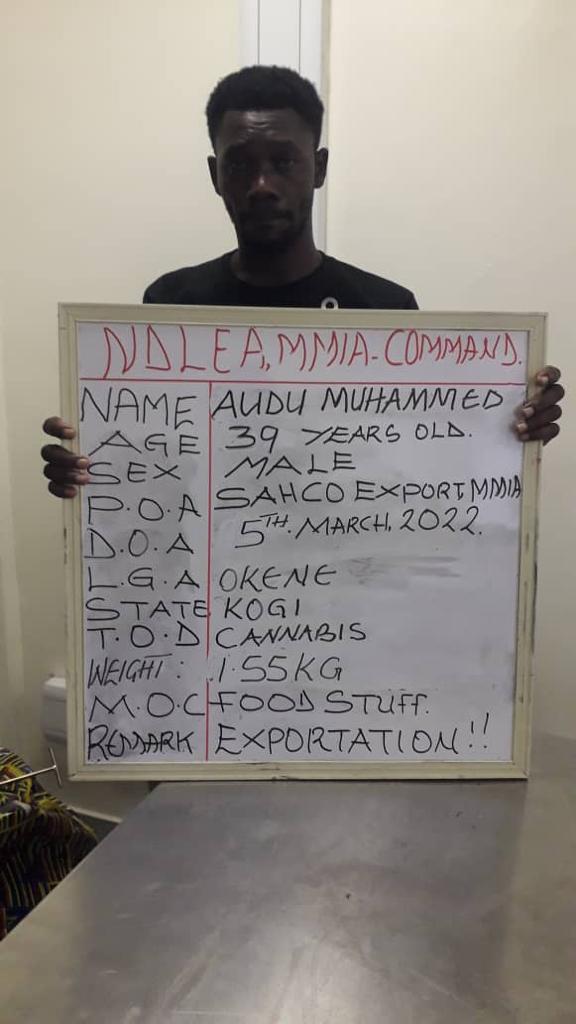 NDLEA, MMIA-COMMAND.
NAME AUDU MUHAMMED
AGE 39 YEARS OLD.
SEX MALE
P.O.A SAHCO EXPORT, MMIA
D.O.A 5TH. MARCH, 2022.
L.G.A OKENE
STATE KOGI
T.O.D CANNABIS
WEIGHT: 1.55KG
M.O.C FOOD STUFF.
REMARK EXPORTATION!!